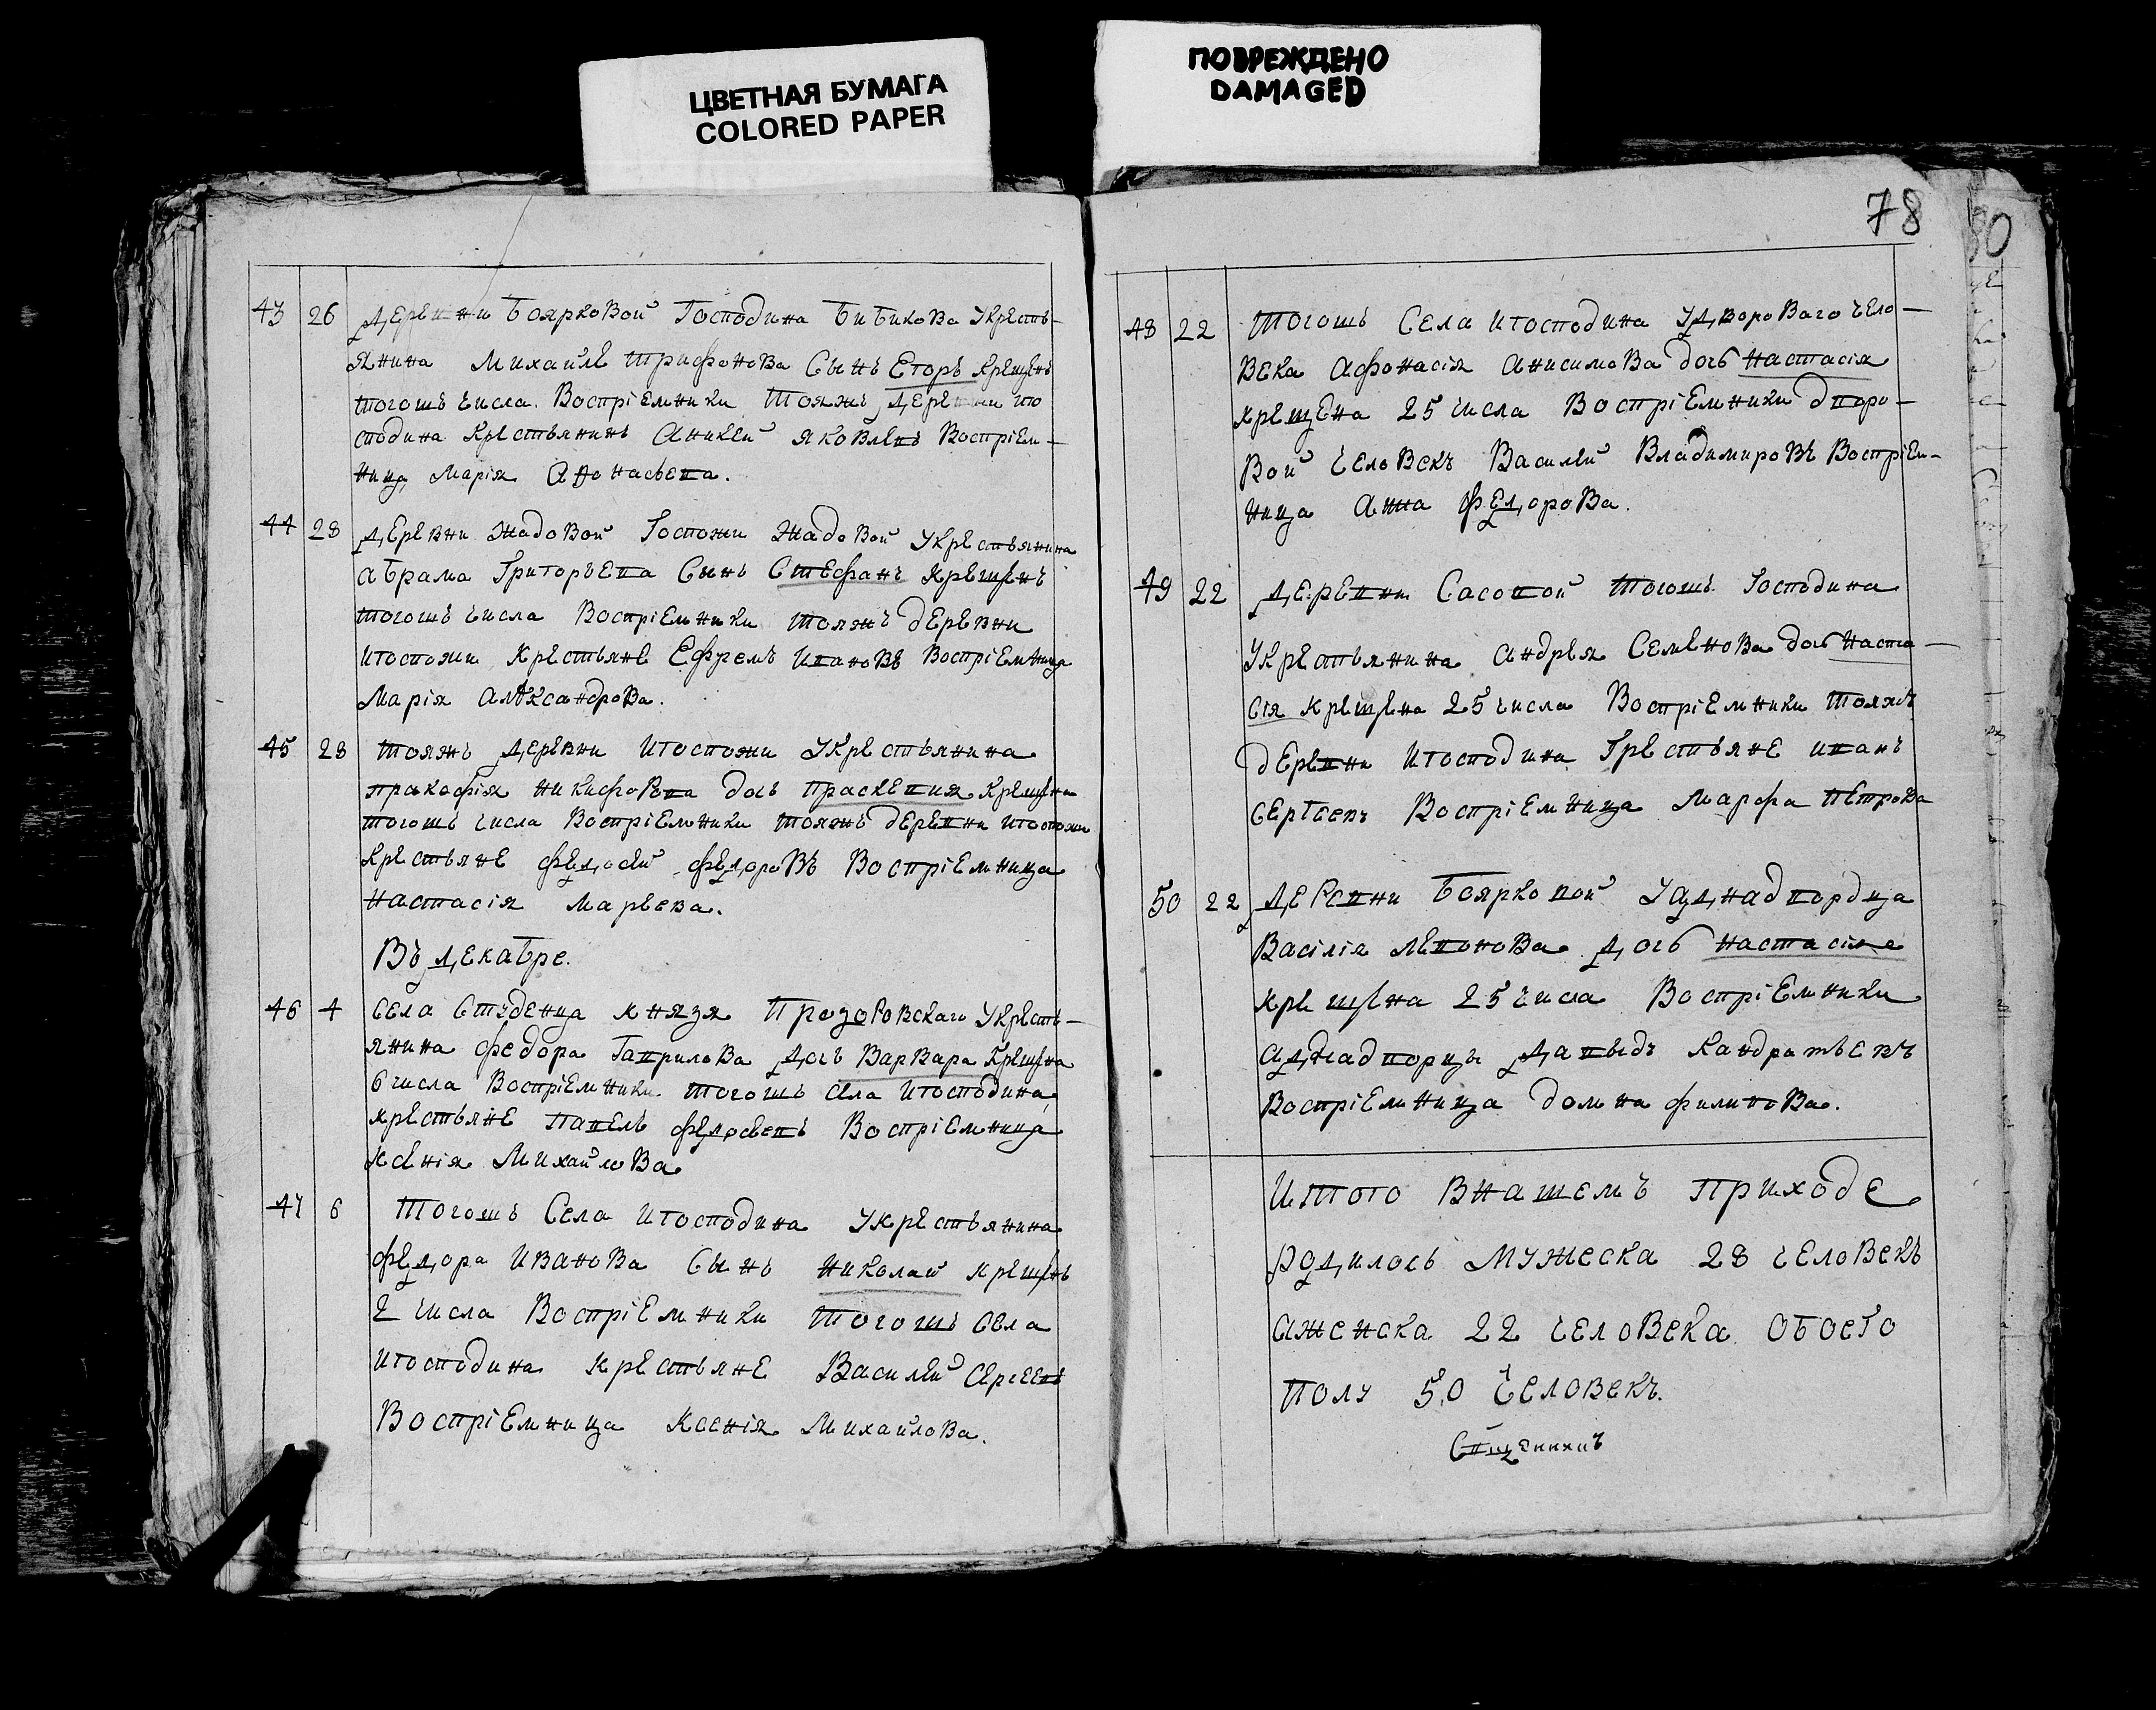 ЦВЕТНАЯ БУМАГА
COLORED PAPER
ПОВРЕЖДЕНО
DAMAGED
43 26 Деревни Боярковой Господина Бибикова Укресть-
янина Михайле Трифонова Сынъ Егоръ крещенъ
тогошъ числа Воспрiемники Тояжъ деревни иго
сподина крестьянинъ Аникей Яковлевъ Воспрiем-
ница Марiя Афонасьева.
44 28 Деревни Жадовой Госпожи Жадовой Укрестьянина
Абрама Григорьева Сынъ Стефанъ крещенъ
тогошъ числа Воспрiемники тояжъ деревни
игоспожи крестьяне Ефремъ Ивановъ Воспрiемница
Марiя Александрова.
45 28 Тояжъ деревни Игоспожи Укрестьянина
Пракофiя Никифорова дочь Праскевия крещена
тогошъ числа Воспрiемники тояжъ деревни игоспожи
крестьяне Федосей Федоровъ Воспрiемница
Настасiя Марьева.
Въ декабре.
46 4 Села Студенца князя Прозоровскаго Укресть-
янина Федора Гаврилова дочь Варвара крещена
6 числа Воспрiемники тогошъ села Игосподина
крестьяне Павелъ Федосеевъ Воспрiемница
Ксенiя Михайлова
47 6 Тогошъ Села Игосподина Укрестьянина
Федора Иванова Сынъ Николай крещенъ
числа Воспрiемники тогошъ села
Игосподина крестьяне Василей Сергеевъ
Воспрiемница Ксенiя Михайлова.
78
48 22 Тогошъ Села Игосподина Удвороваго чело-
века Афонасiя Анисимова дочь Настасiя
крещена 25 числа Воспрiемники дворо-
вой человекъ Василей Владимировъ Воспрiем-
ница Анна Федорова.
49 22 Деревни Сасовой тогошъ Господина
Укрестьянина Андрея Семенова дочь Наста-
сiя крещена 25 числа Воспрiемники тояжъ
деревни Игосподина крестьяне Иванъ
Сергеевъ Воспрiемница Марфа Петрова
50 22 Деревни Боярковой Уаднадворца
Васiлiя Левонова дочь Настасiя
крещена 25 числа Воспрiемники
аднадворцы Давыдъ Кандратьевъ
Воспрiемница Домна Филипова.
Итого внашемъ приходе
родилось мужеска 28 человекъ
аженска 22 человека обоего
полу 50 человекъ.
Сщенникъ